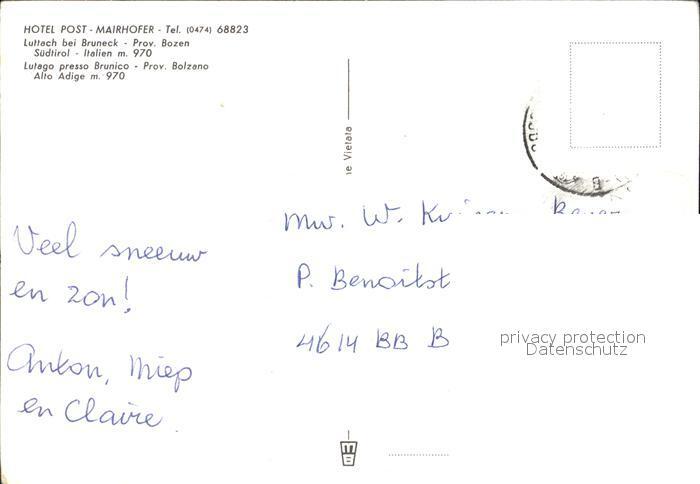 HOTEL POST - MAIRHOFER - Tel. (0474) 68823
Luttach bei Bruneck - Prov. Bozen
Südtirol - Italien m. 970
Lutago presso Brunico - Prov. Bolzano
Alto Adige m. 970
ne Vietata
Veel sneeuw
en zon!
Anton, Miep
en Claire
Mw. W.
P. Benoitst
4614 BB B
privacy protection
Datenschutz